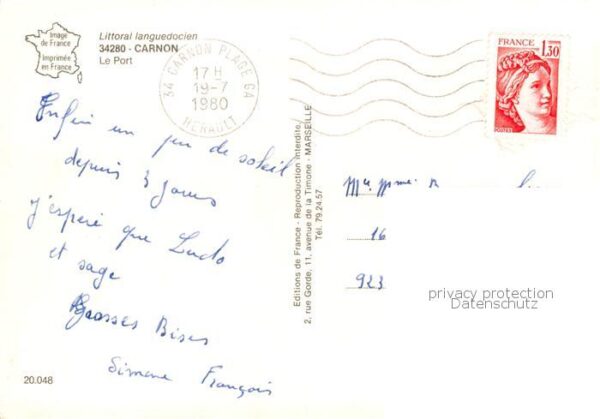 Image
de France
Imprimée
en France
Littoral languedocien
34280 - CARNON
Le Port
34 CARNON PLAGE GA
17 H
19-7
1980
HERAULT
FRANCE
1,30
POSTES
Enfin un peu de soleil
depuis 3 jours
j'espère que Ludo
et sage
Grosses Bises
Simone François
20.048
Editions de France - Reproduction interdite
2, rue Gorde, 11, avenue de la Timone - MARSEILLE
Tél. 79.24.57
16
923
privacy protection
Datenschutz